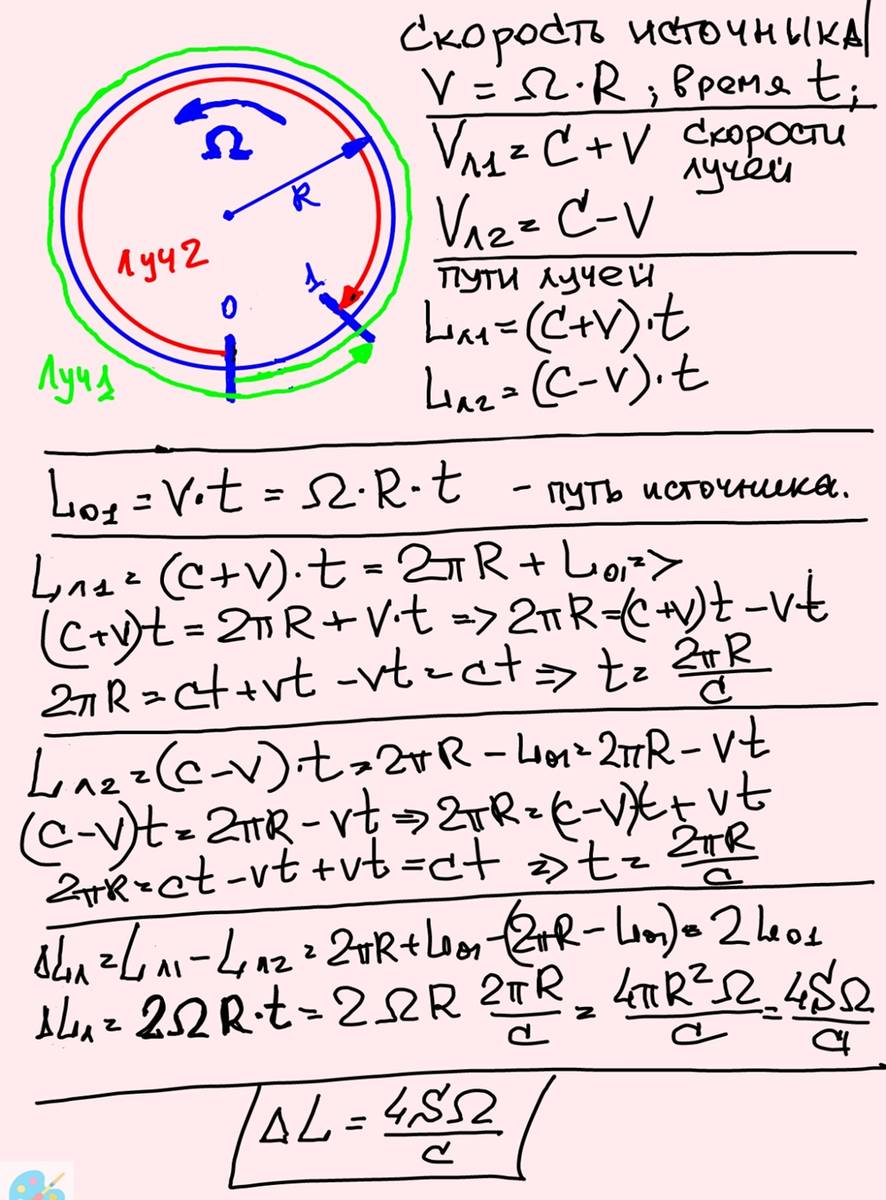 Скорость источныка
V = Ω·R ; время t;
Vл1 = C+V скорости
лучей
Vл2 = C−V
пути лучей
Lл1 = (C+V)·t
Lл2 = (C−V)·t
Ω
R
Луч2
1
0
Луч1
L01 = V·t = Ω·R·t - путь источника.
Lл1 = (C+V)·t = 2πR + L01 =>
(C+V)t = 2πR + V·t => 2πR = (C+V)t − Vt
2πR = Ct + Vt − Vt = Ct => t = 2πR/C
Lл2 = (C−V)·t = 2πR − L01 = 2πR − Vt
(C−V)t = 2πR − Vt => 2πR = (C−V)t + Vt
2πR = Ct − Vt + Vt = Ct => t = 2πR/C
ΔLл = Lл1 − Lл2 = 2πR + L01 − (2πR − L01) = 2L01
ΔLл = 2ΩR·t = 2ΩR 2πR/C = 4πR²Ω/C = 4SΩ/C
ΔL = 4SΩ/C